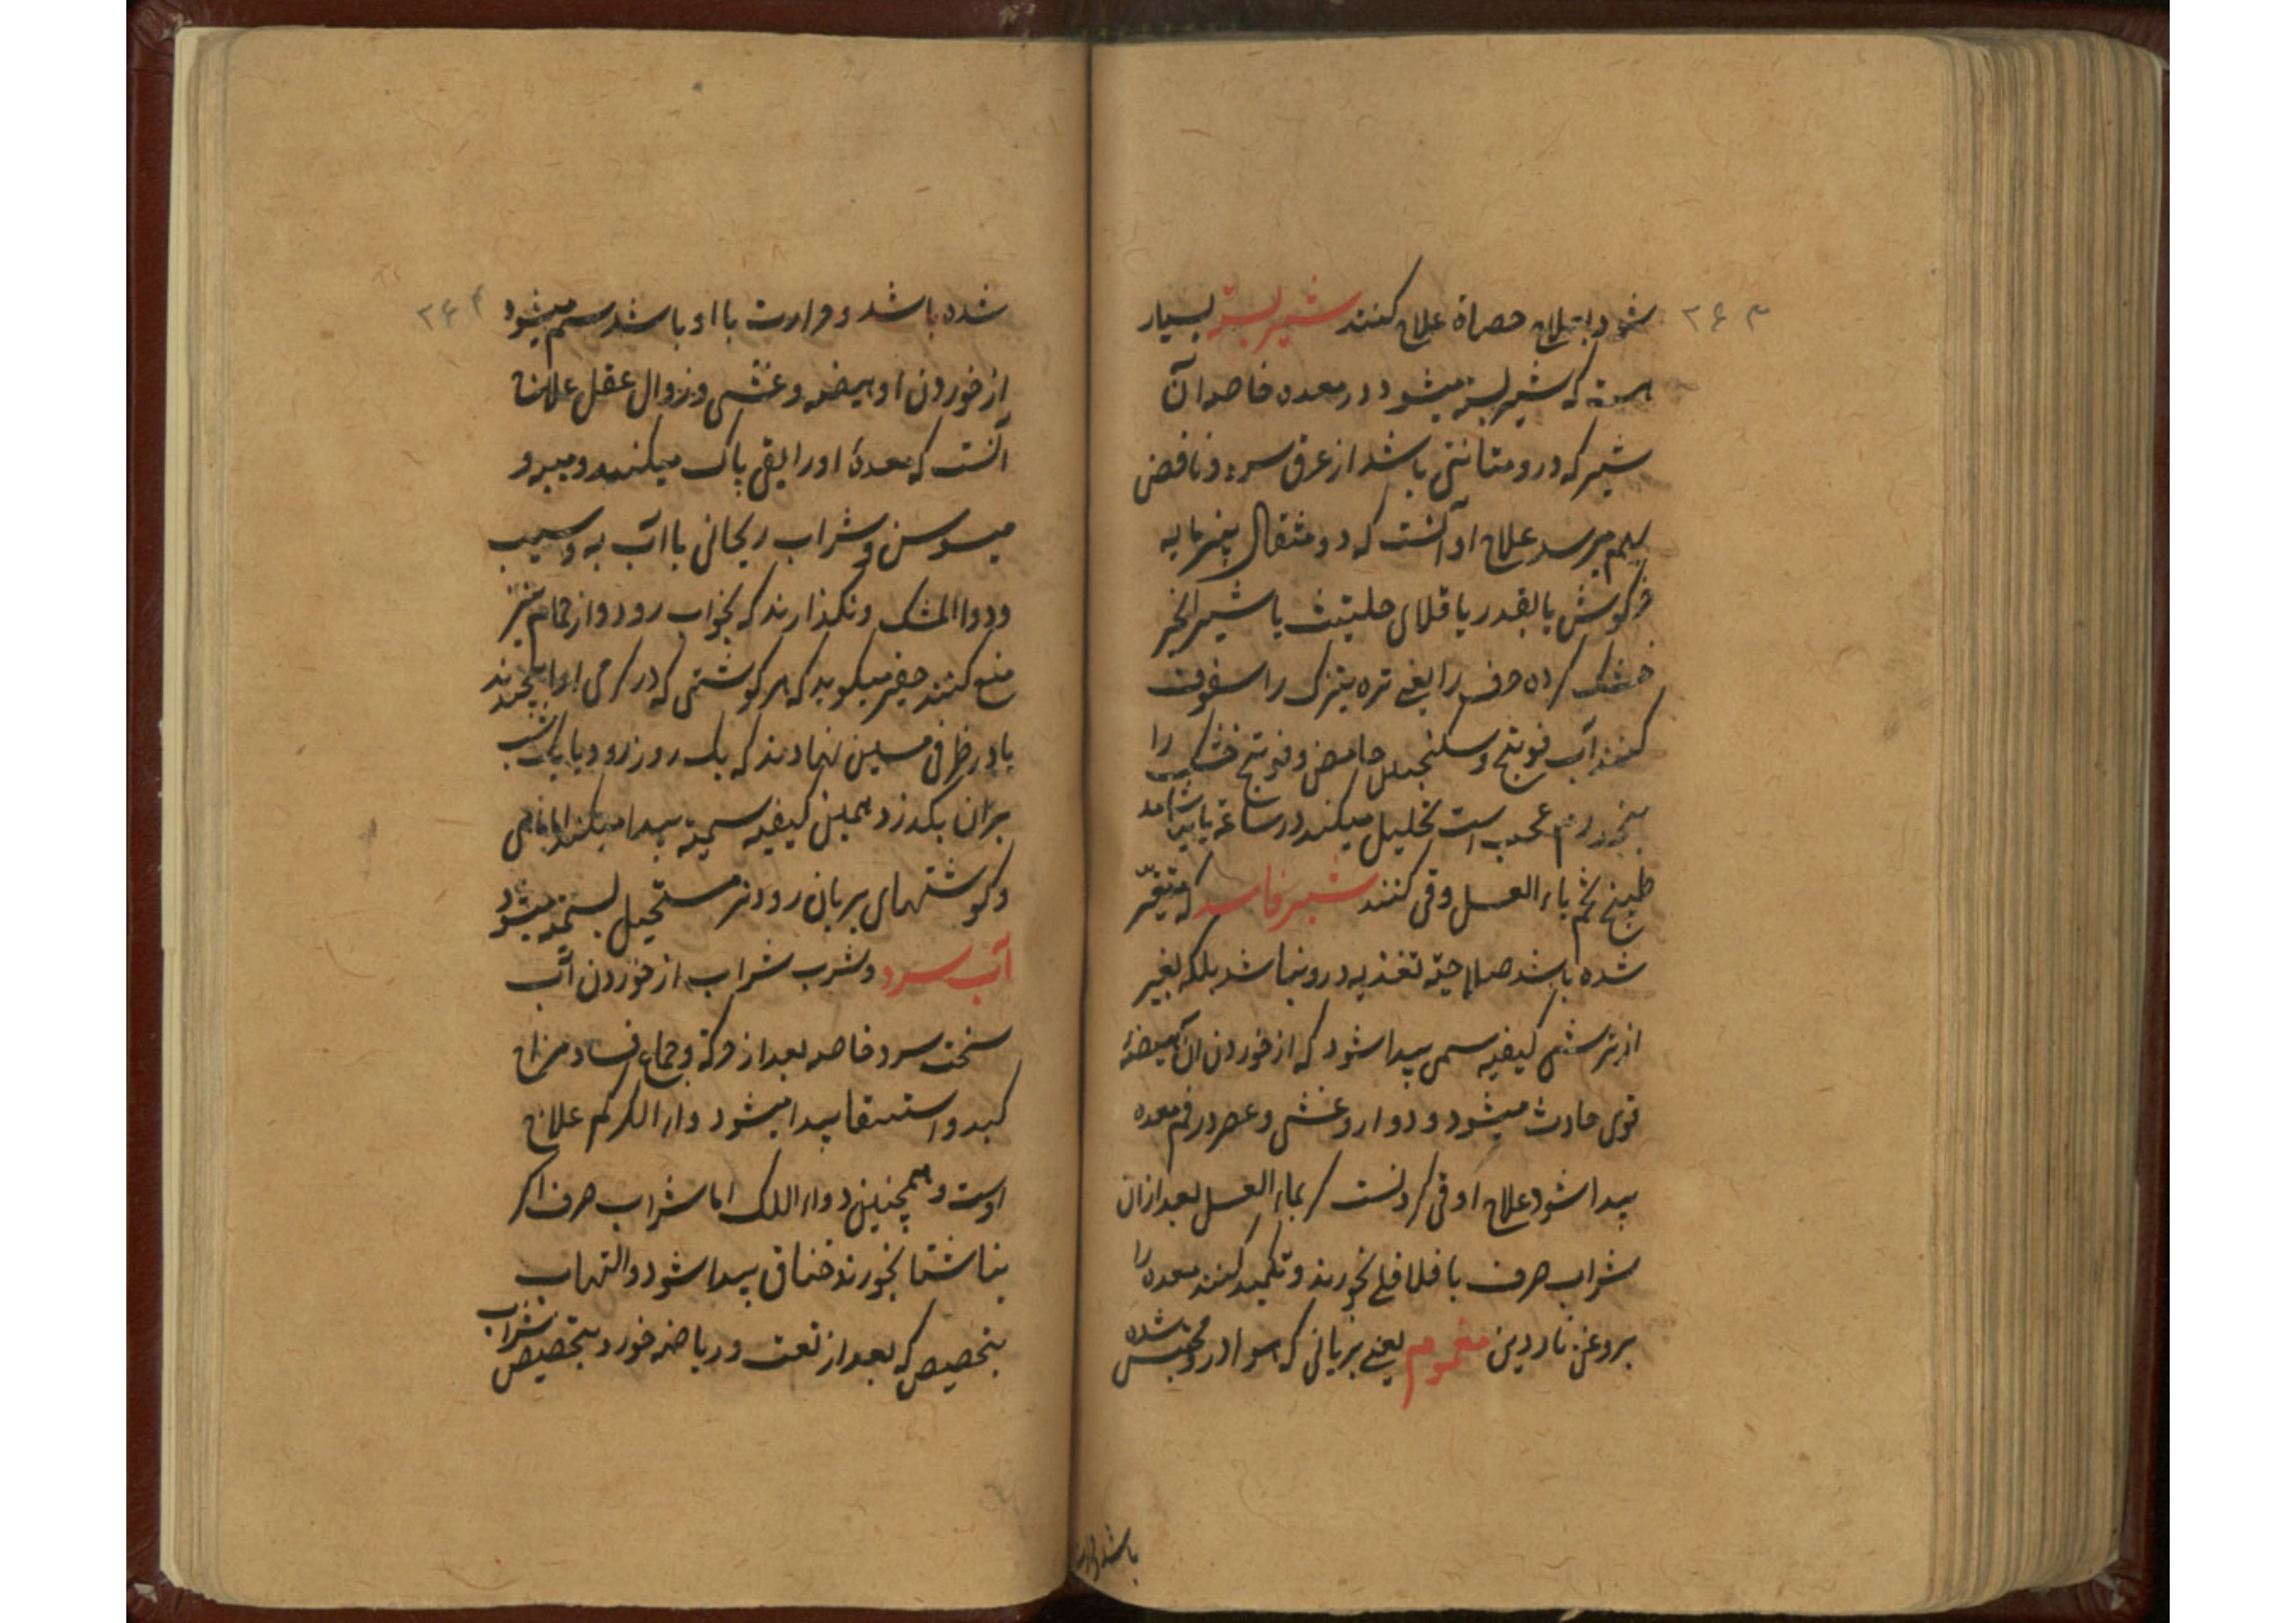 ۲۶۳
شود بعلاج حصاة علاج کنند شیر بسته بسیار
هست که شیر بسته میشود در معده خاصه آن
شیر که درو متانتی باشد از عرق سرد و نافض
بهم میرسد علاج او آنست که دو مثقال پنیرمایه
خرکوش یا بقدر باقلای حلتیت یا شیر انجیر
خشک کرده حرف را یعنی تره تیزک را سفوف
کنند آب فوتنج و سکنجبین حامض و فوتنج خشک را
بخورد عجیب است تحلیل میکند در ساعة یا بیاشامد
طبیخ تخم بماء العسل و قی کنند شیر فاسد که متغیر
شده باشد صلاحیة تغذیه درو نباشد بلکه بغیر
از ترشی کیفیه سمی پیدا شود که از خوردن آن هیضهٔ
قوی حادث میشود و دوار و غشی و عصر در فم معده
پیدا شود علاج او قی کردنست بماء العسل بعد ازان
شراب صرف با فلافلی بخورند و تکمید کنند معده را
بروغن ناردین مغموم یعنی بریانی که هوا درو محتبس شده
باشد و حرارت
۲۶۴
شده باشد و حرارت با او باشد سم میشود
از خوردن او هیضه و غشی و زوال عقل علاج
آنست که معدهٔ او را بقی پاک میکنند و میبه و
میسوسن و شراب ریحانی با آب به و سیب
و دوا المشک و نکذارند که بخواب رود و از حمام نیز
منع کنند حقیر میکوید که هر کوشتی که در کرمی او را بپیچند
یا در ظرفی مسین نهادند که یک روز رود یا یک شب
بران بکذرد همین کیفیه سمیة پیدا میکند اما ماهی
و کوشتهای بریان زودتر مستحیل بسمیة میشود
آب سرد و شرب شراب از خوردن آب
سخت سرد خاصه بعد از حرکة و جماع فساد مزاج
کبد و استسقا پیدا میشود دواء الکرکم علاج
اوست و همچنین دواء اللک اما شراب صرف اکر
بناشتا بخورند خناق پیدا شود و التهاب
بتخصیص که بعد از تعب و ریاضه خورد بتخصیص شراب